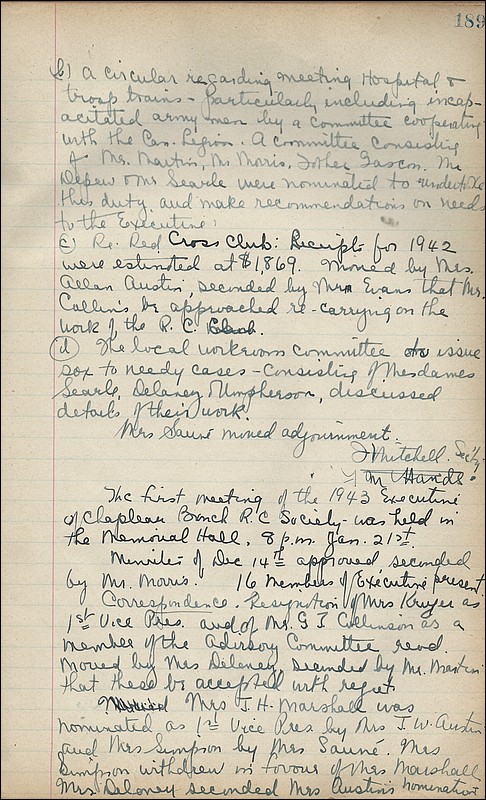 189
b) A circular regarding meeting Hospital &
troop trains - particularly including incap-
acitated army men by a committee cooperating
with the Can. Legion. A committee consisting
of Mr. Martin, Mr. Morris, Father Gascon, Mr.
Depew & Mr Searle were nominated to undertake
this duty and make recommendations on needs
to the Executive.
c) Re. Red Cross Club: Receipts for 1942
were estimated at $1,869. Moved by Mrs.
Allan Austin, seconded by Mrs Evans that Mr.
Collins be approached re-carrying on the
work of the R. C. Club.
d) The local workroom committee to issue
sox to needy cases - consisting of Mesdames
Searle, Delaney & Umpherson, discussed
details of their work.
Mrs Sauné moved adjournment.
J Mitchell. Sec'ty
The first meeting of the 1943 Executive
of Chapleau Branch R. C Society - was held in
the Memorial Hall, 8 p.m. Jan. 21st.
Minutes of Dec 14th approved, seconded
by Mr. Morris. 16 members of Executive present.
Correspondence. Resignation of Mrs Kruger as
1st Vice Pres. and of Mr. G T Collinson as a
member of the Advisory Committee read.
Moved by Mrs Delaney, seconded by Mr. Martin
that these be accepted with regret.
Mrs J. H. Marshall was
nominated as 1st Vice Pres by Mrs J. W. Austin
and Mrs Simpson by Mrs Sauné. Mrs
Simpson withdrew in favour of Mrs Marshall
Mrs. Delaney seconded Mrs Austin's nomination